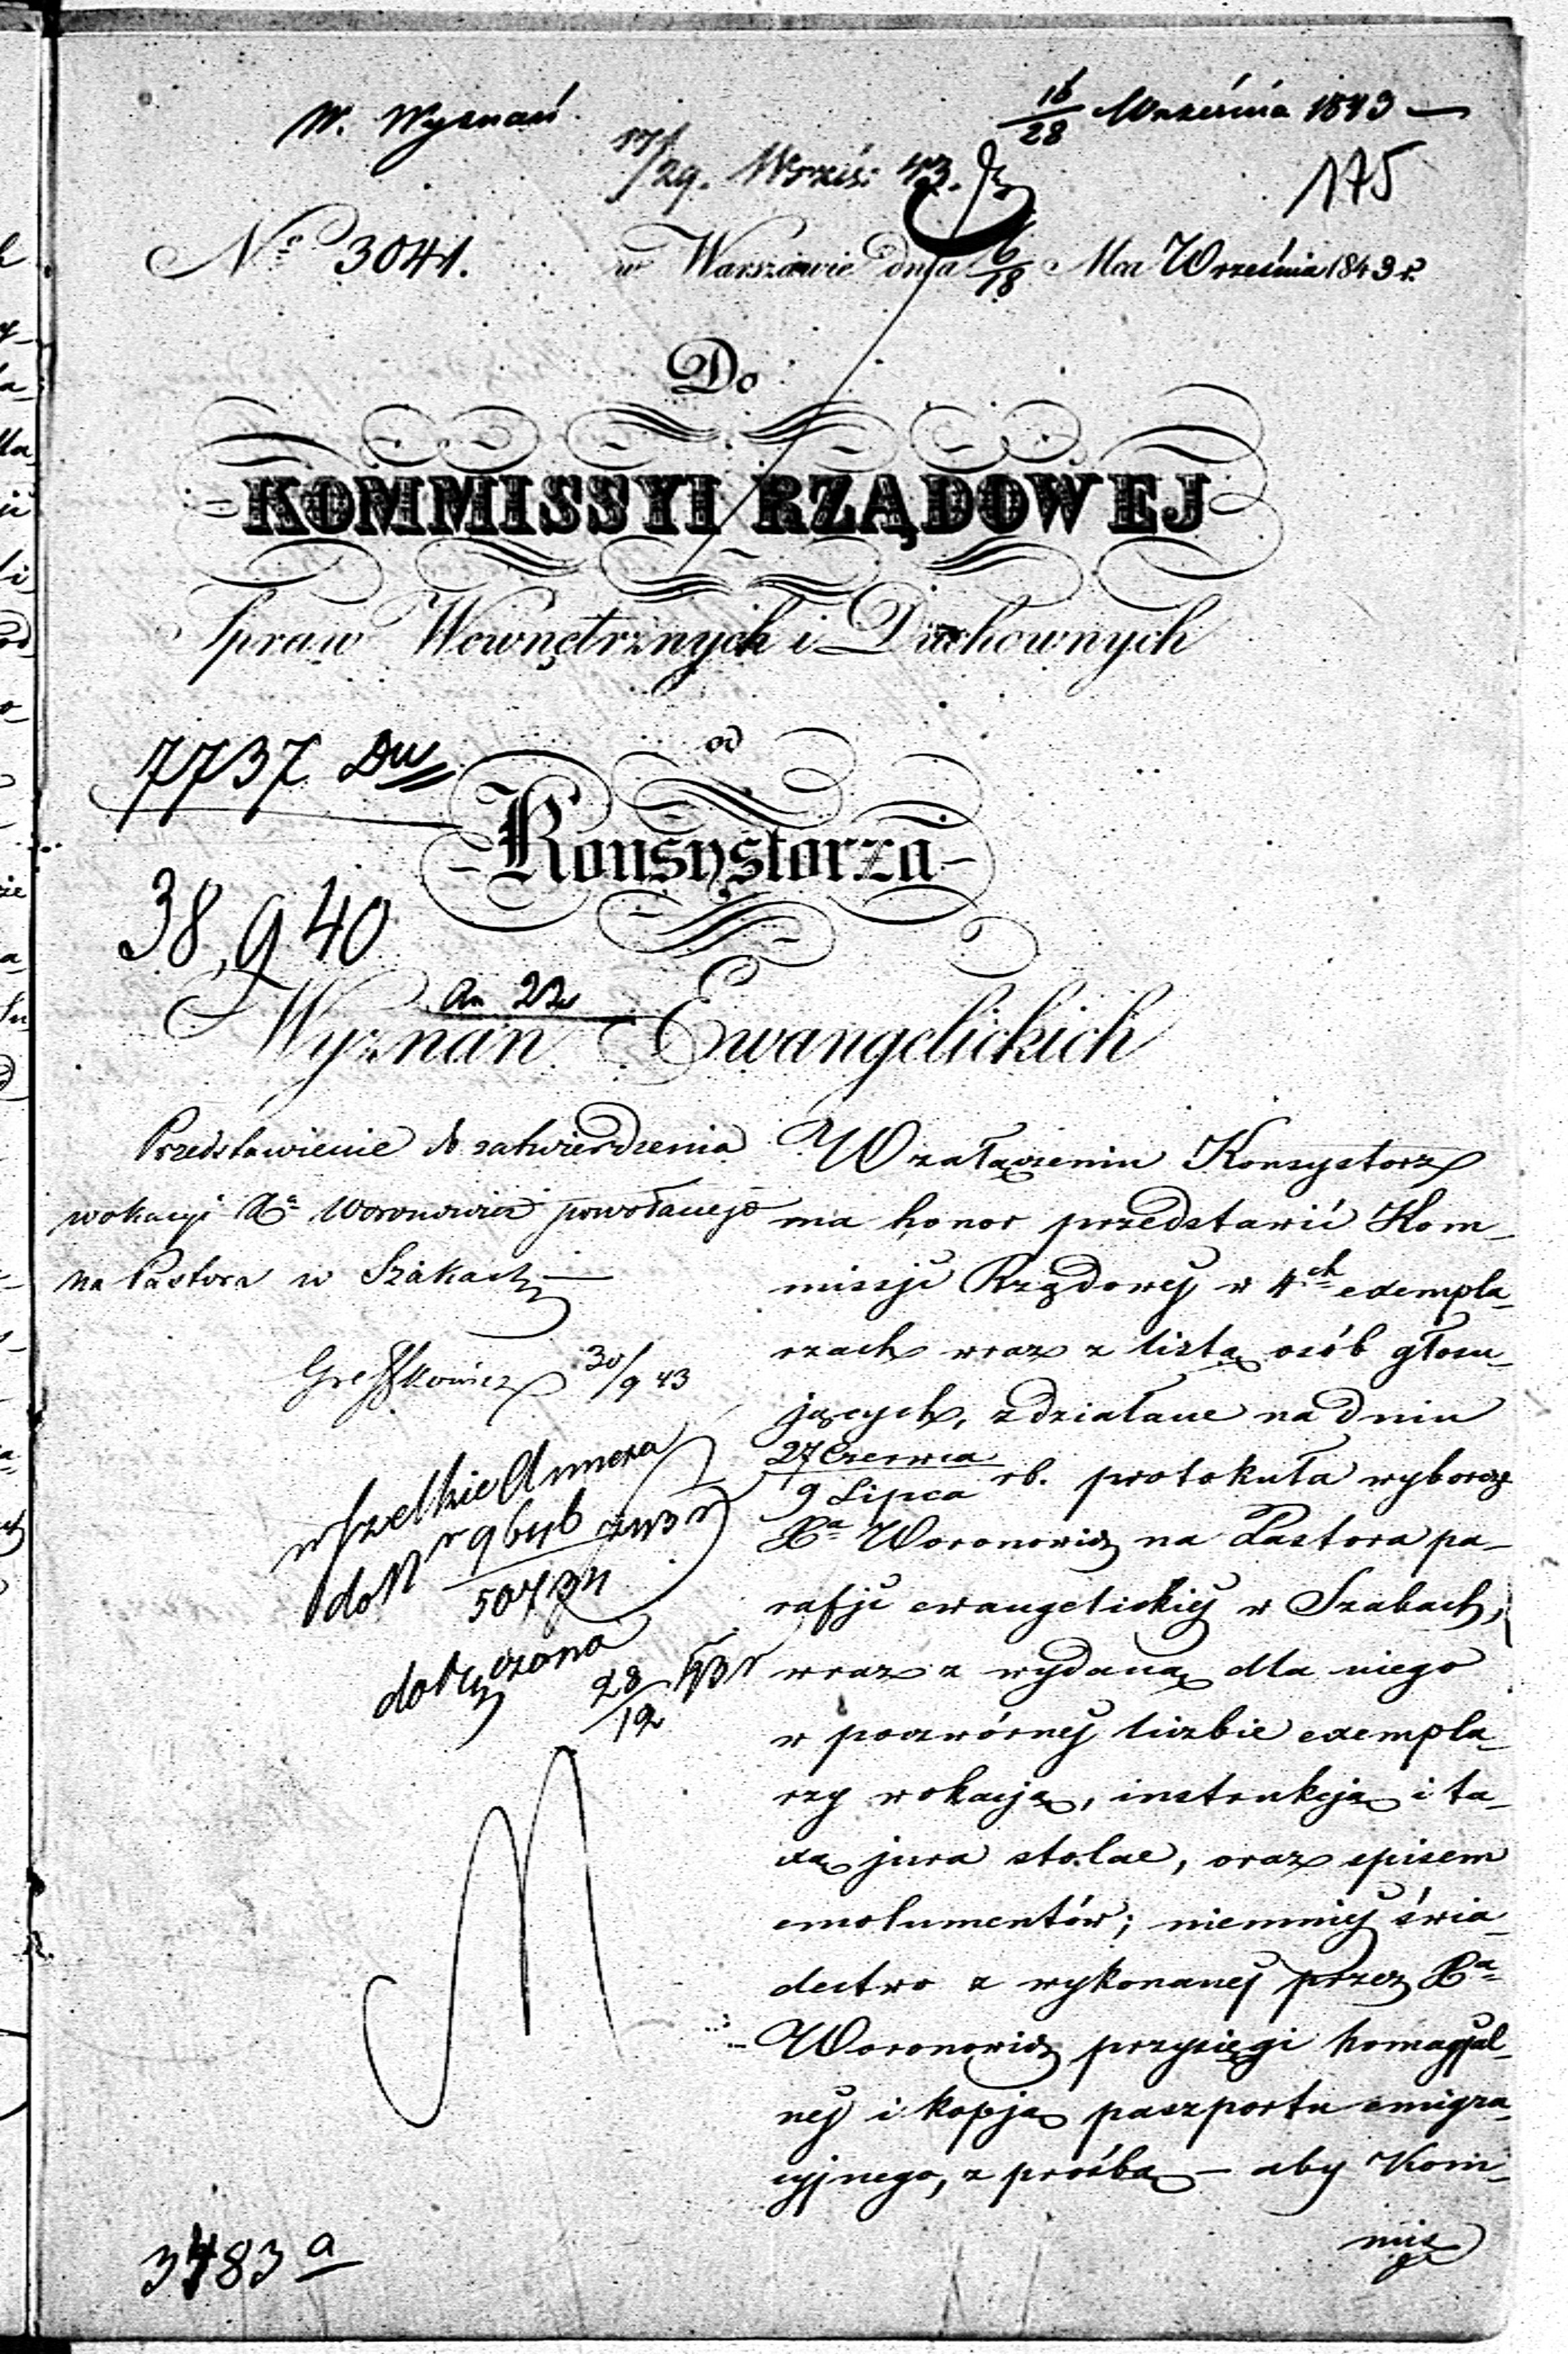 W. Wyznań.
16/28 Września 1843
17/29. Wrześ: 43.
175
Nr 3041. w Warszawie dnia 6/18 Mca Września 1843 r.
Do
KOMMISSYI RZĄDOWEJ
Spraw Wewnętrznych i Duchownych
7737 Du
od
Konsystorza
38,940
An 22
Wyznań Ewangelickich
Przedstawienie do zatwierdzenia
wokacyi Xa Woronowicz powołanego
na Pastora w Szakach
30/9 43
wszelkie
do N r 9646 843 r
50734
dołączona
28/12 43 r
W załączeniu Konsystorz
ma honor przedstawić Kom-
missji Rządowej w 4ch exempla-
rzach wraz z listą osób głosu-
jących, zdziałane na dniu
27 Czerwca
9 Lipca rb. protokuła wyborcze
Xa Woronowicz na Pastora pa-
rafji ewangelickiej w Szakach,
wraz z wydaną dla niego
w poczwórnej liczbie exempla-
rzy wokacją, instrukcją i ta-
xą jura stolae, oraz spisem
emolumentów; niemniej świa-
dectwo z wykonanej przez Xa
Woronowicz przysięgi homagjal-
nej i kopją paszportu emigra-
cyjnego, z prośbą – aby Kom-
mis
3483 a